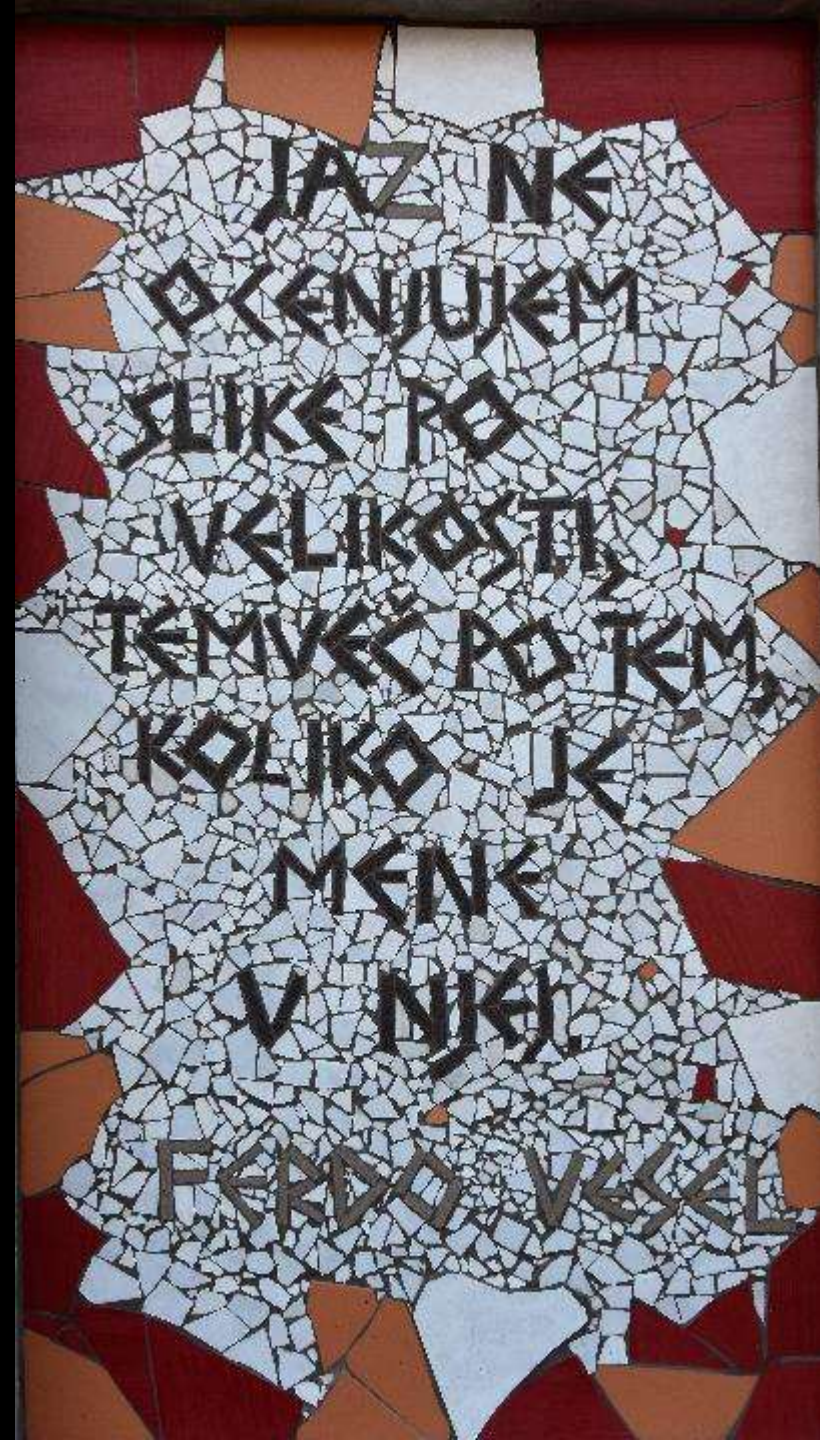 JAZ NE
OCENJUJEM
SLIKE PO
VELIKOSTI,
TEMVEČ PO TEM,
KOLIKO JE
MENE
V NJEJ.
FERDO VESEL